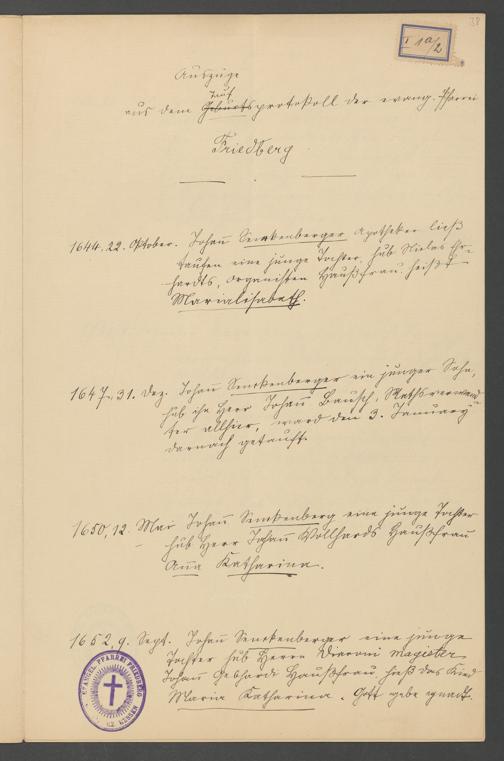 38
I 1a/2
Auszüge
Tauf
aus dem Geburtsprotokoll der evang. Pfarrei
Friedberg
1644. 22. Oktober. Johan̅ Senckenberger Apotheker ließ
taufen eine junge Tochter, hub Niclas
hardts, Organisten Haußfrau. heißt
Marialisabeth.
1647, 31. Dez. Johan̅ Senckenberger ein junger Sohn,
hub ihn Herr Johan̅ Bausch, Rathsverwand-
ter allhier, ward den 3. January
darnach getauft.
1650, 12. Mai Johan̅ Senckenberg eine junge Tochter
hub Herr Johan̅ Vollhards Haußfrau
An̅a Katharina.
1652, 9. Sept. Johan̅ Senckenberger eine junge
Tochter hub Herrn Diaconi magister
Johan̅ Gebhardi Haußfrau, hieß das Kind
Maria Katharina. Gott gebe gnadt.
EVANGEL. PFARREI FRIEDBERG
HESSEN